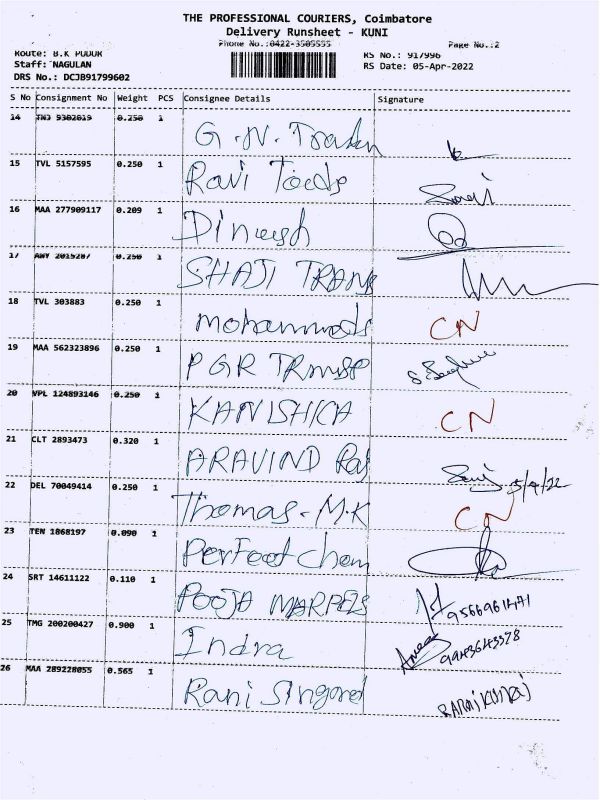 THE PROFESSIONAL COURIERS, Coimbatore
Delivery Runsheet - KUNI
Phone No.:0422-3505555 Page No.:2
Route: B.K PUDUR RS No.: 917996
Staff: NAGULAN RS Date: 05-Apr-2022
DRS No.: DCJB91799602
S No Consignment No Weight PCS Consignee Details Signature
14 TNJ 9302019 0.250 1 G.N.
15 TVL 5157595 0.250 1 Ravi
16 MAA 277909117 0.209 1 Dinesh
17 AWY 2015207 0.250 1 SHAJI TRANS
18 TVL 303883 0.250 1 mohammads CN
19 MAA 562323896 0.250 1 PGR
20 VPL 124893146 0.250 1 KANISHKA CN
21 CLT 2893473 0.320 1 ARAVIND Raj 5/4/22
22 DEL 70049414 0.250 1 Thomas.M.K CN
23 TEN 1868197 0.090 1 Perfect Chem
24 SRT 14611122 0.110 1 POOJA MARPELS
25 TMG 200200427 0.900 1 Indra 9943643378
26 MAA 289228055 0.565 1 Rani